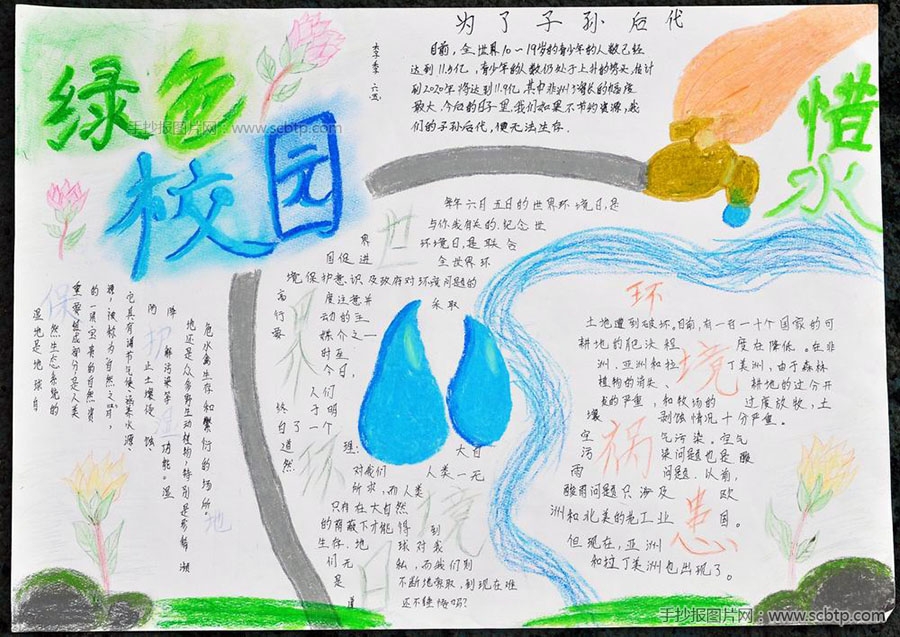 绿色
校园
为了子孙后代
李季 六五
目前,全世界10~19岁的青少年的人数已经
达到11.5亿,青少年的人数仍处于上升的势头,估计
到2020年将达到11.9亿,其中非洲增长的幅度
最大.今后的日子里,我们如果不节约资源,我
们的子孙后代,便无法生存.
惜水
手抄报图片网:www.scbtp.com
每年六月五日的世界环境日,是
与你我有关的.纪念世
界环境日,是联合
国促进全世界环
境保护意识及政府对环境问题的
高度注意并采取
行动的主
要媒介之一
时至
今日,
人们
终于明
白了一个
道班:大自
然对我们人类一无
所求,而人类
只有在大自然
的荫蔽下才能得到
生存.地球对我
们无私,而我们则
是不断地索取,到现在难
道还不醒悟吗?
世界环境日
环境祸患
土地遭到破坏.目前,有一百一十个国家的可
耕地的肥沃程度在降低。在非
洲、亚洲和拉丁美洲,由于森林
植物的消失、耕地的过分开
发的严重,和牧场的过度放牧,土
壤剥蚀情况十分严重。
空气污染。空气
污染问题也是酸
雨问题.以前,
酸雨问题只涉及欧
洲和北美的老工业国。
但现在,亚洲
和拉丁美洲也出现了。
保护湿地
湿地是地球自
然生态系统的
重要组成部分,是人类
的
它具有调节气候、涵养水源、
降解污染等功能。湿
防止土壤侵蚀、
地还是众多野生动植物,特别是
危水禽生存和繁衍的场所。
手抄报图片网:www.scbtp.com